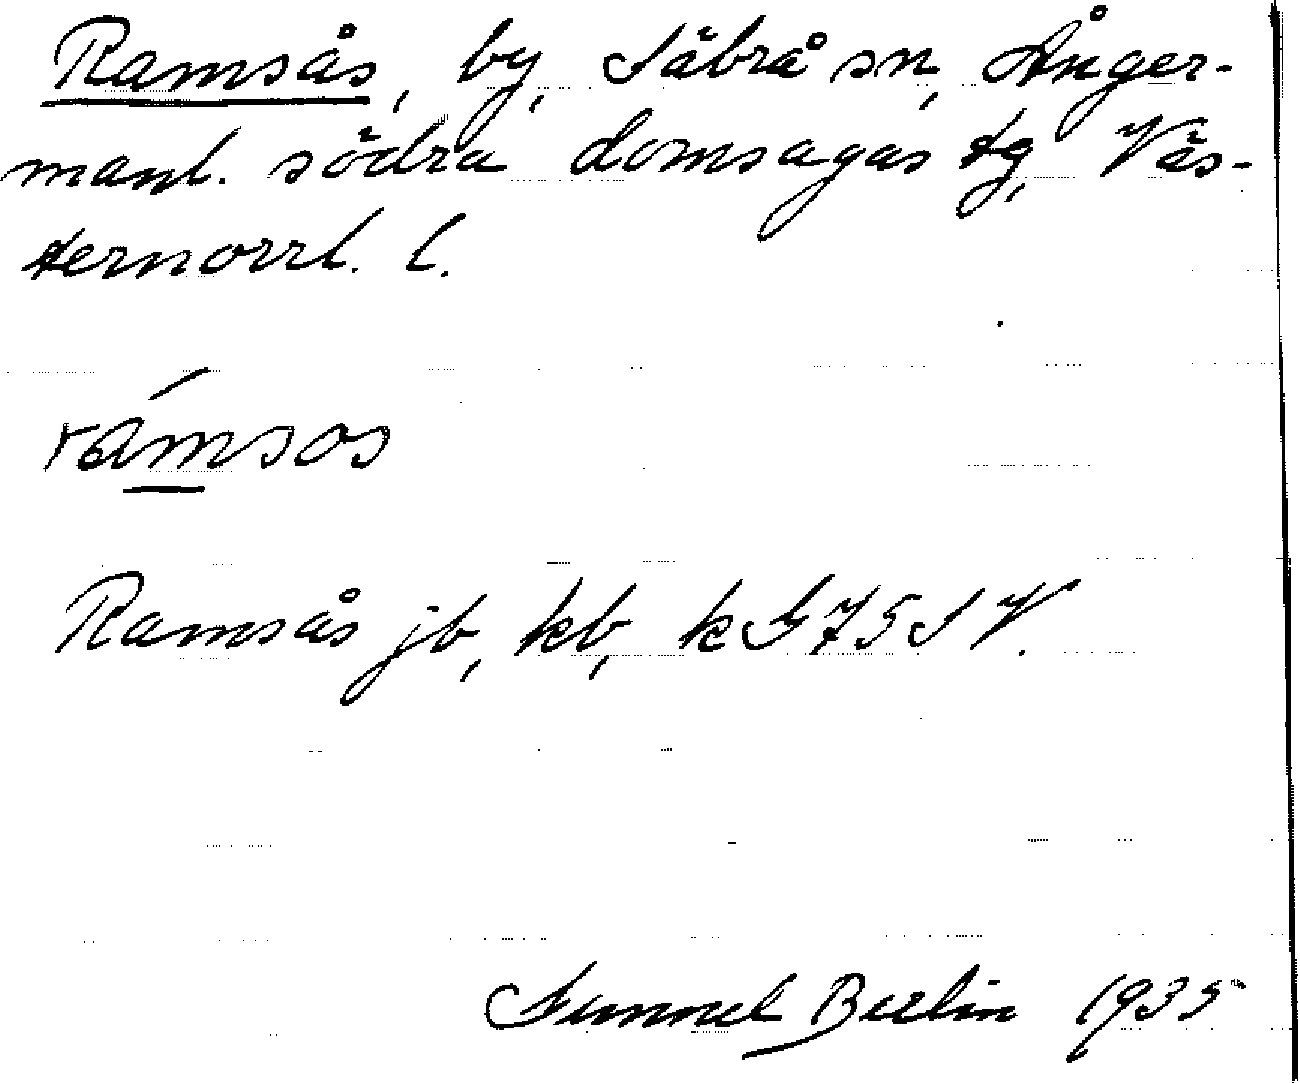 Ramsås, by, Säbrå sn, Ånger-
manl. södra domsagas tg, Väs-
ternorrl. l.
rámsos
Ramsås jb, kb, k G 75 S V.
Gunnel Berlin 1935